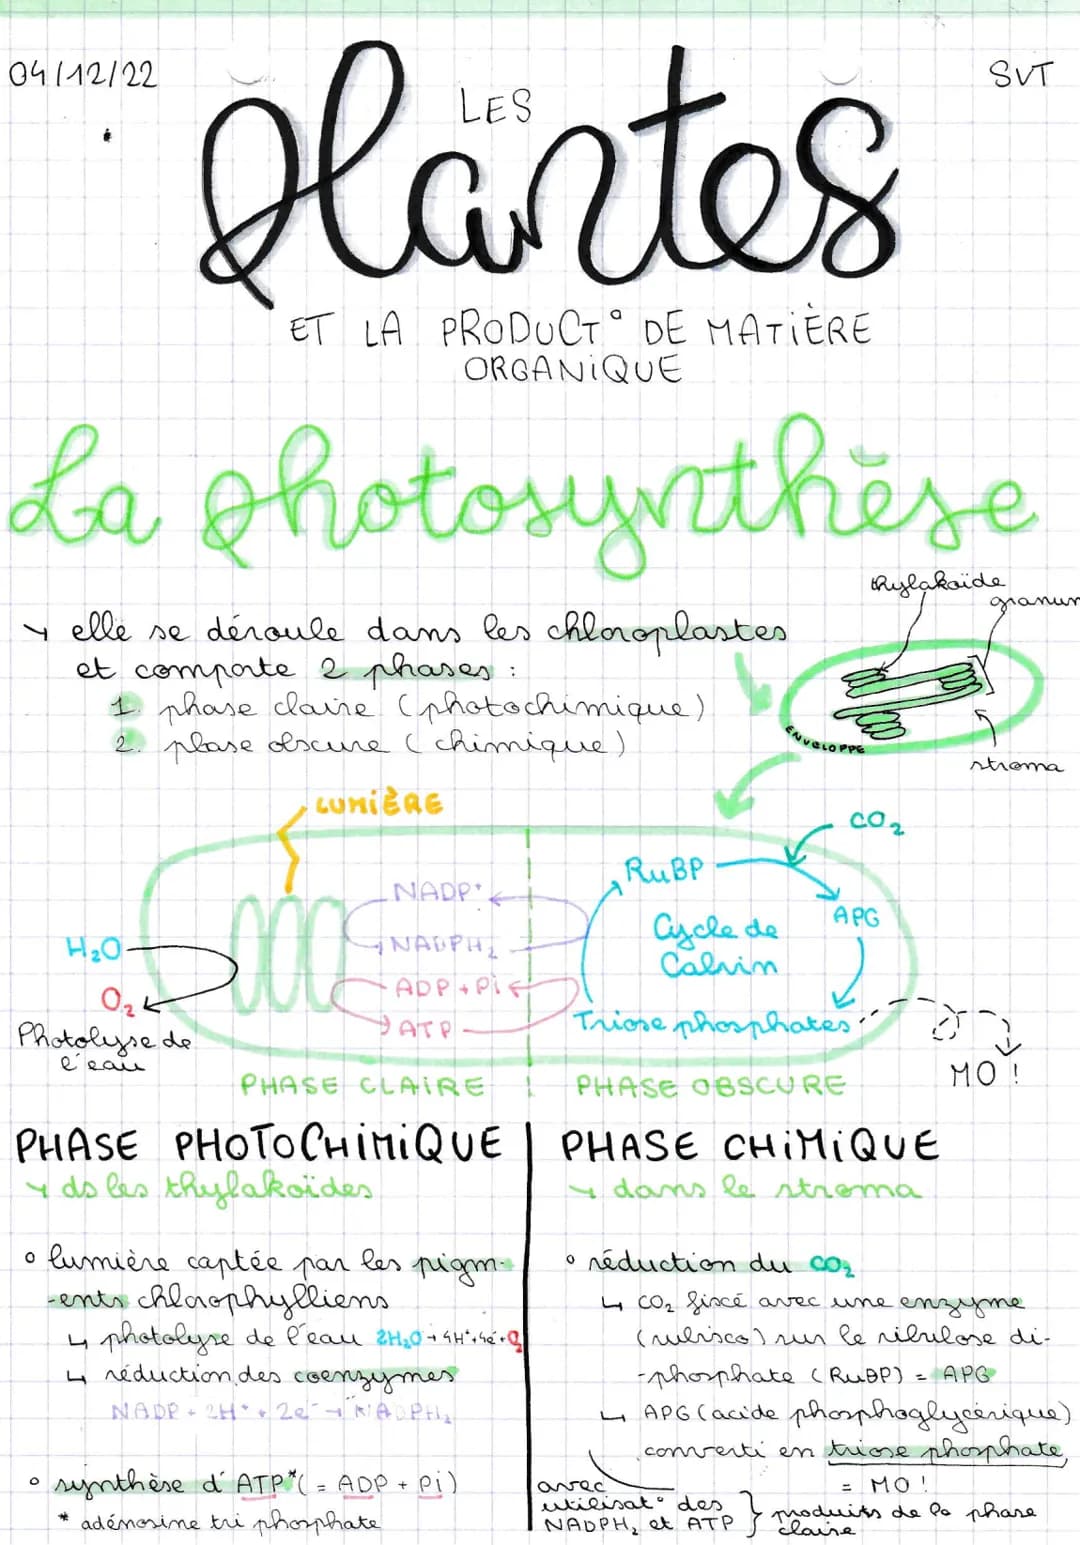 04/12/22
SVT
LES
Plantes
ET LA PRODUCT° DE MATIÈRE
ORGANIQUE
La photosynthèse
thylakoïde
granum
↘ elle se déroule dans les chloroplastes
et comporte 2 phases :
1. phase claire (photochimique)
2. phase obscure (chimique)
ENVELOPPE
stroma
LUMIÈRE
CO₂
RuBP
NADP⁺
APG
NADPH₂
Cycle de
Calvin
H₂O
ADP + Pi
O₂
ATP
Triose phosphates
Photolyse de
l'eau
MO !
PHASE CLAIRE
PHASE OBSCURE
PHASE PHOTOCHIMIQUE
↘ ds les thylakoïdes
° lumière captée par les pigm-
-ents chlorophylliens
↳ photolyse de l'eau 2H₂O → 4H⁺+4e⁻+O₂
↳ réduction des coenzymes
NADP + 2H⁺ + 2e⁻ → NADPH₂
° synthèse d'ATP* ( = ADP + Pi)
* adénosine tri phosphate
PHASE CHIMIQUE
↘ dans le stroma
° réduction du CO₂
↳ CO₂ fixé avec une enzyme
(rubisco) sur le ribulose di-
-phosphate (RuBP) = APG
↳ APG (acide phosphoglycérique)
converti en triose phosphate
= MO !
avec
utilisat° des
NADPH₂ et ATP } produits de la phase
claire